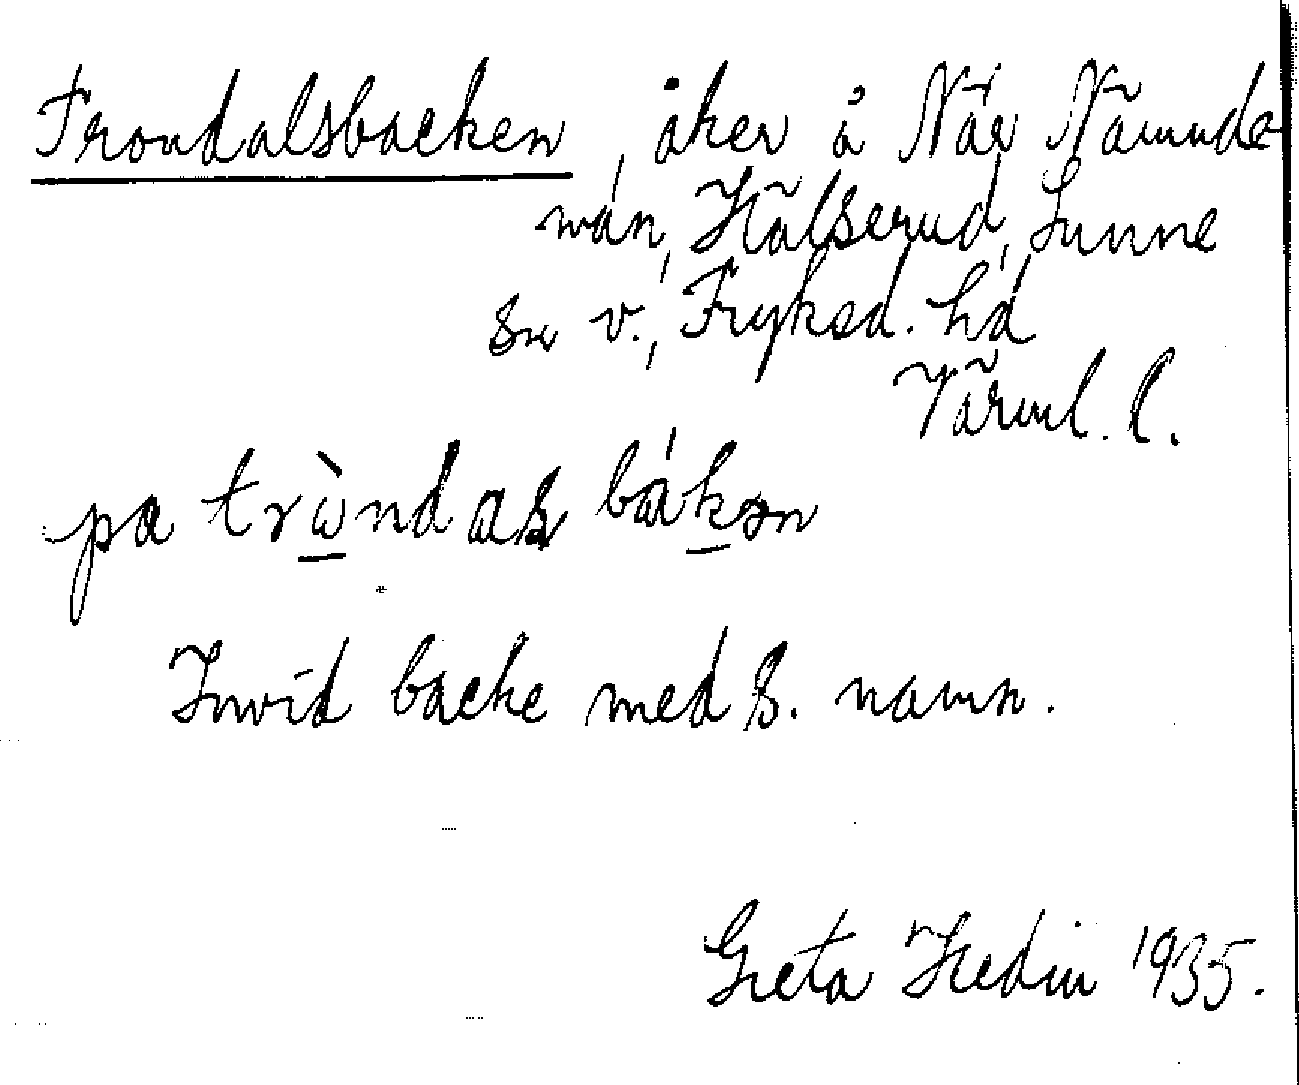 Trondalsbacken, åker å När Nämnde-
män, Hälserud, Sunne
sn v., Fryksd. hd
Värml. l.
pa tròndas bákən
Invid backe med s. namn.
Greta Hedin 1935.